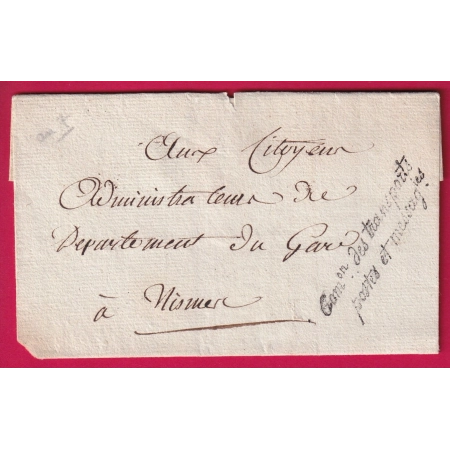 Aux Citoyens
Administrateurs du
Departement du Gard
à Nismes
Com.on des transports
postes et messag.ies